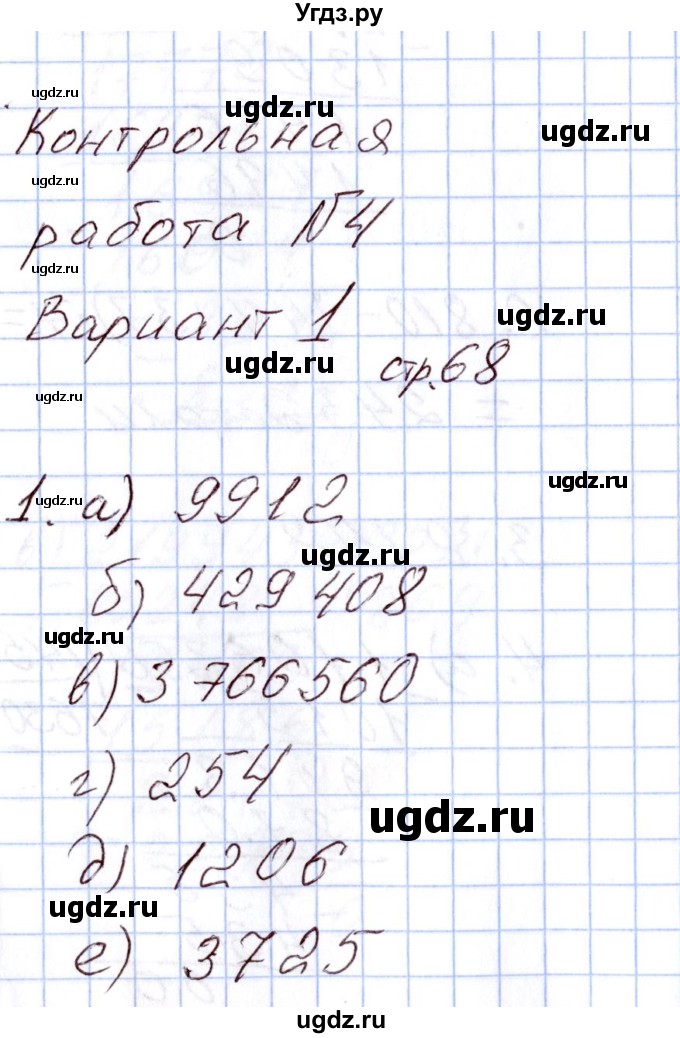 Угдз.ру
ugdz.ru
ugdz.ru
ugdz.ru
Контрольная
ugdz.ru
работа №4
ugdz.ru
Вариант 1
ugdz.ru
ugdz.ru
стр.68
ugdz.ru
ugdz.ru
ugdz.ru
1. а) 9912
ugdz.ru
б) 429 408
ugdz.ru
в) 3 766 560
г) 254
ugdz.ru
д) 1206
ugdz.ru
е) 3725
ugdz.ru